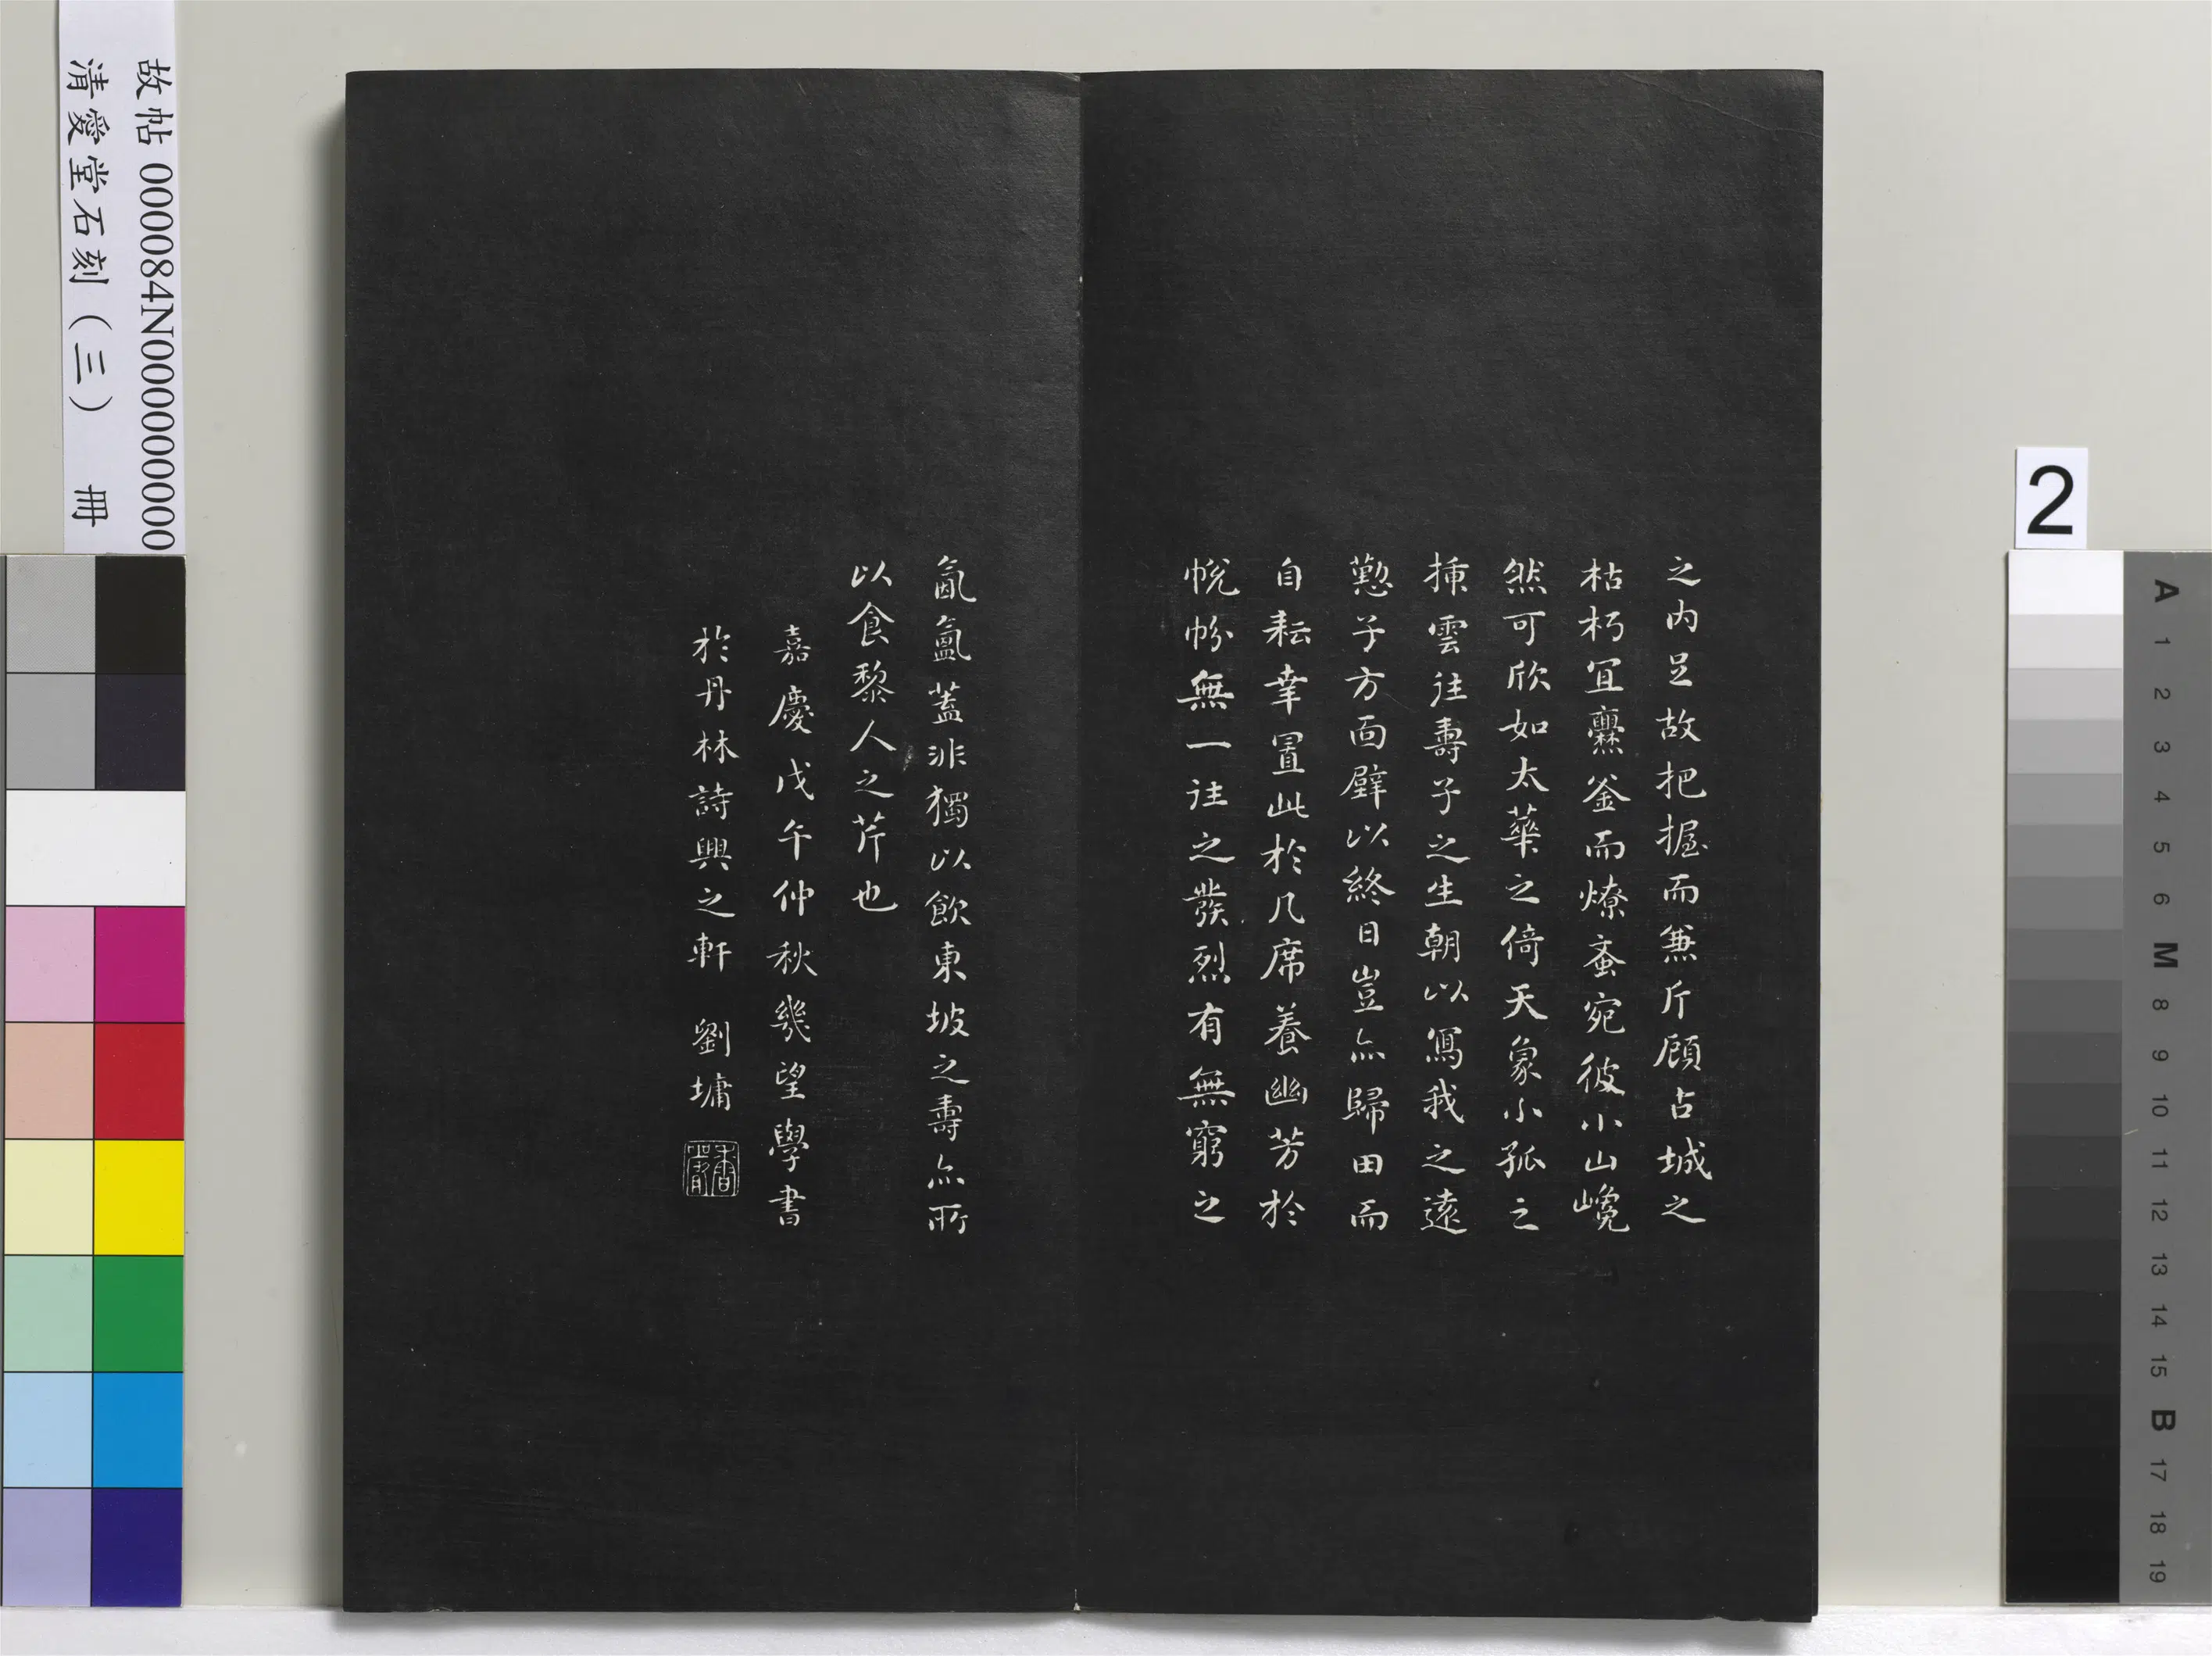 之内足故把握而兼斤顧占城之
枯朽宜爨釜而燎蚉宛彼小山巉
然可欣如太華之倚天象小孤之
揷雲往壽子之生朝以寫我之遠
懃子方面壁以終日豈亦歸田而
自耘幸置此於几席養幽芳於
帨帉無一往之發烈有無窮之
氤氳蓋非獨以飲東坡之壽亦所
以食黎人之芹也
嘉慶戊午仲秋幾望學書
於丹林詩興之軒 劉墉
故帖 000084N000000000
清愛堂石刻（三） 冊
2
A
1
2
3
4
5
6
M
8
9
10
11
12
13
14
15
B
17
18
19